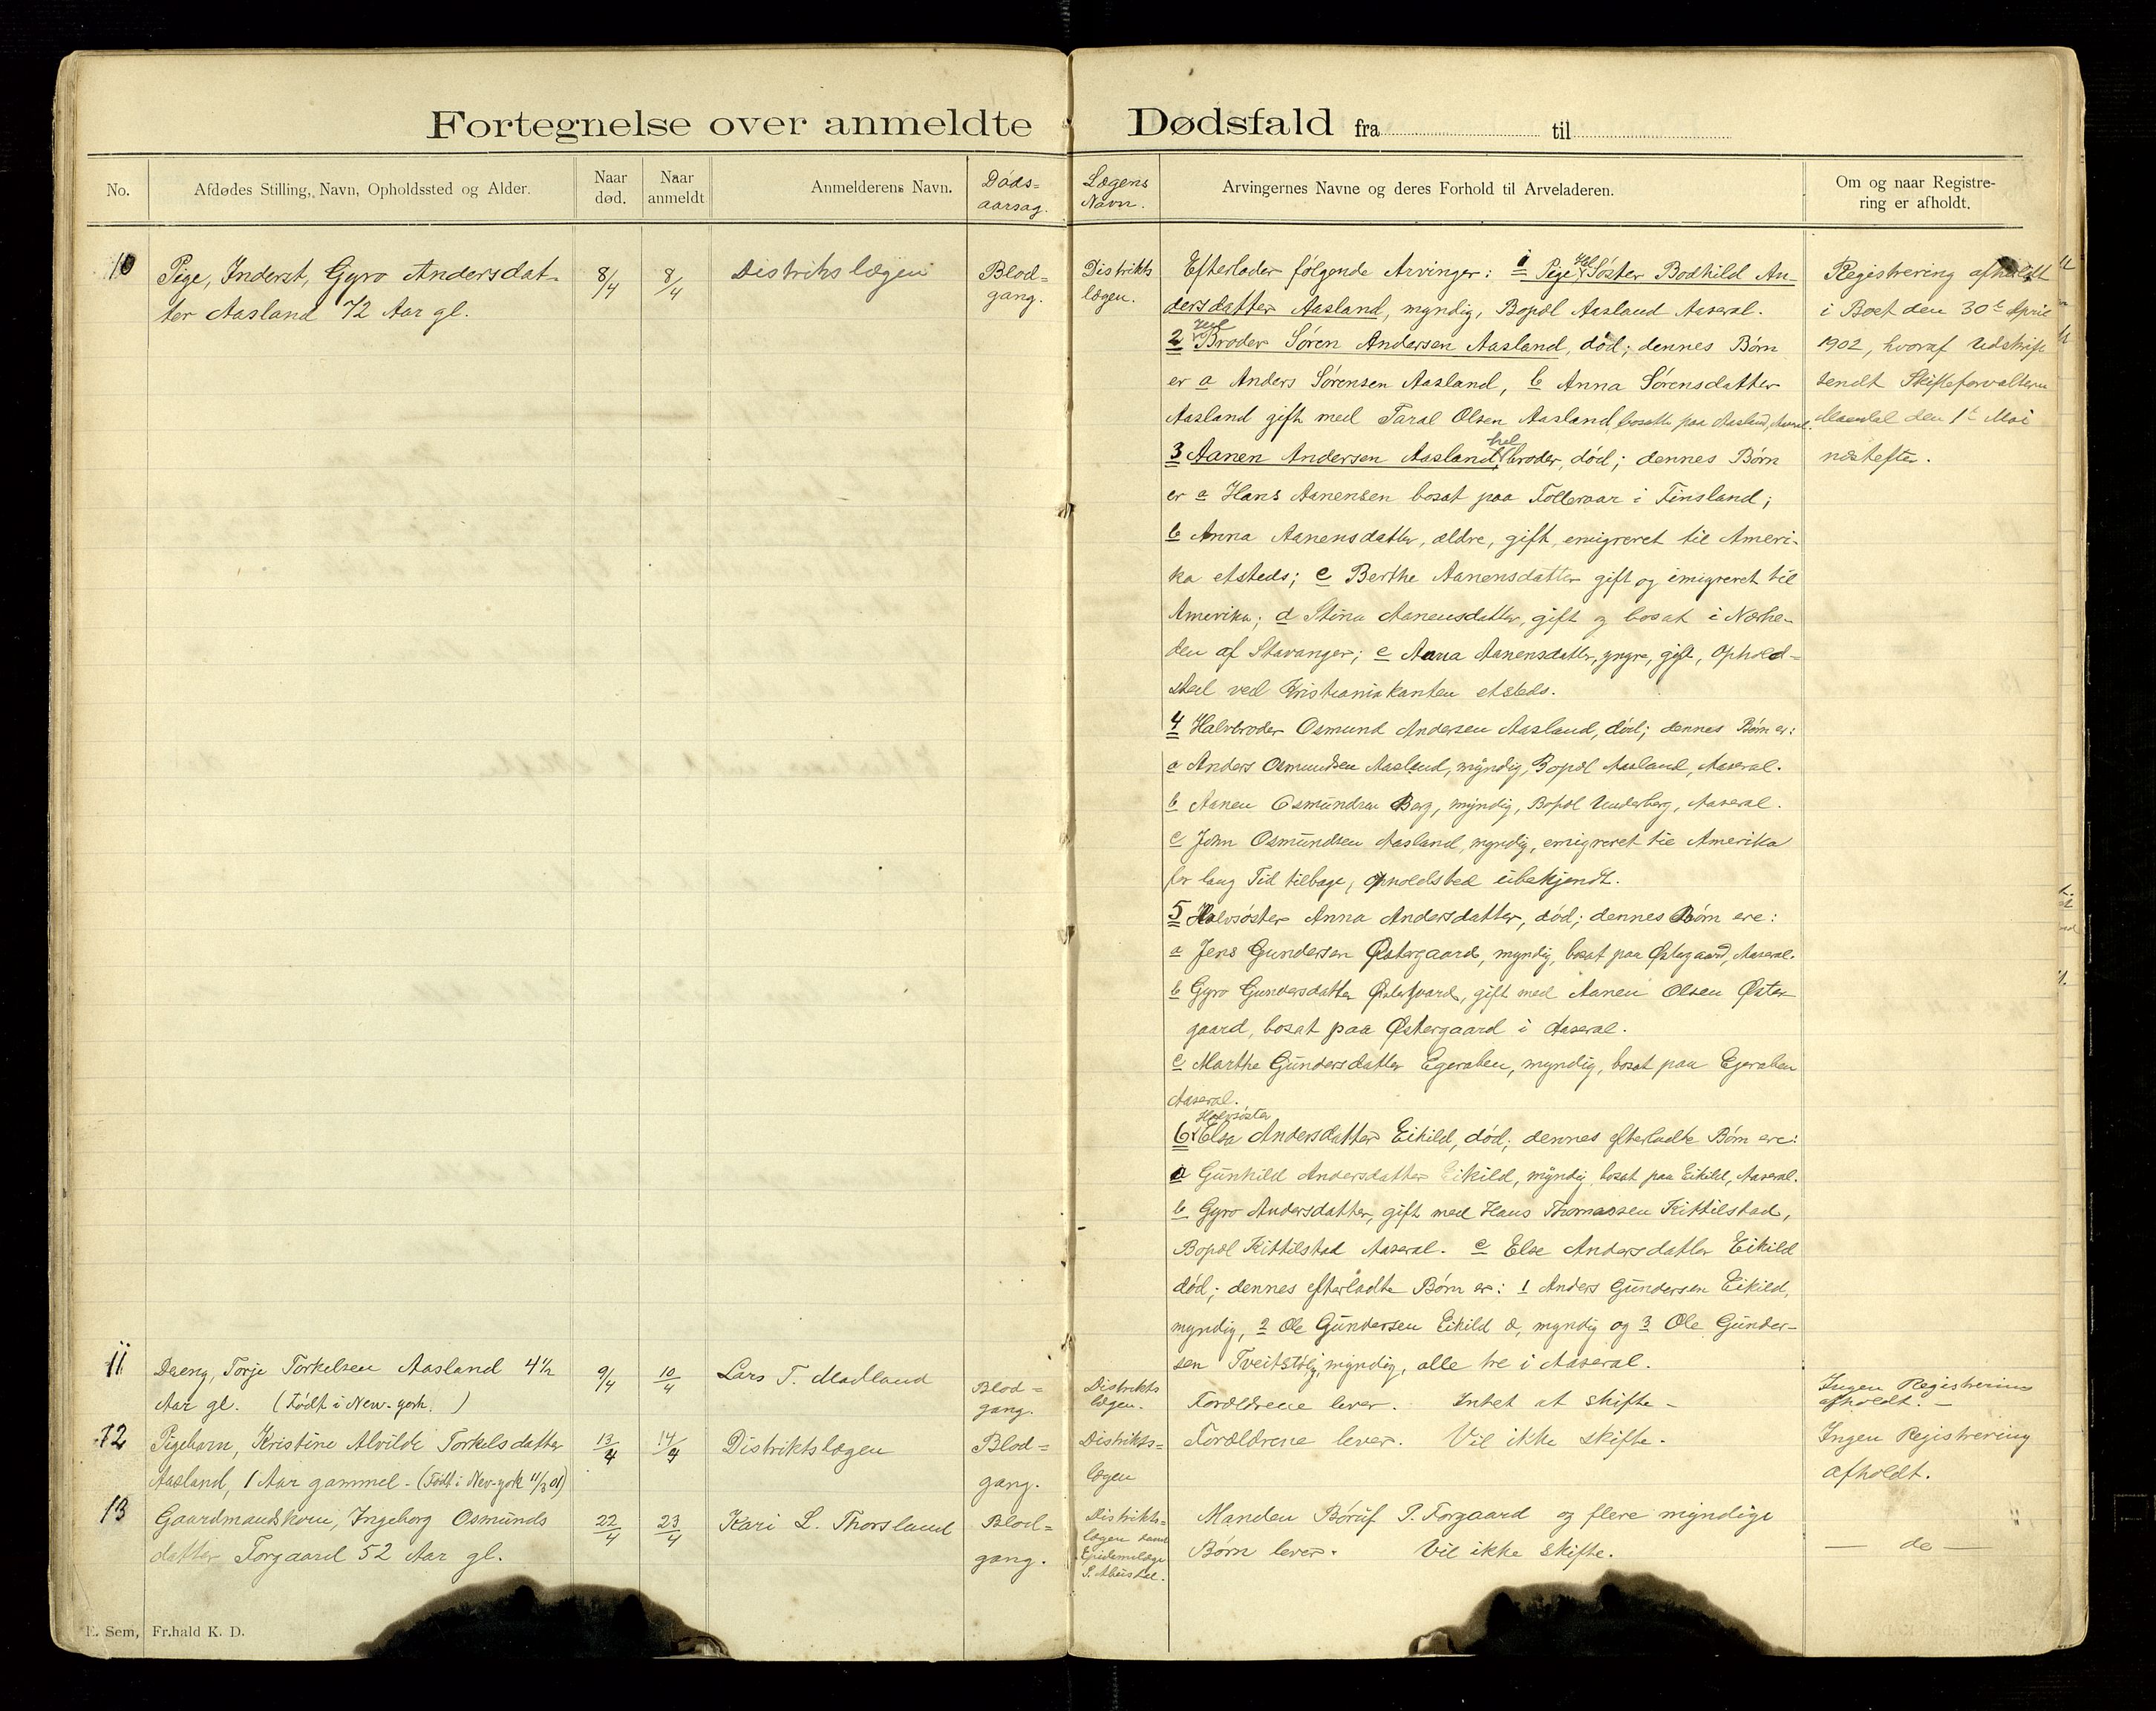 Fortegnelse over anmeldte Dødsfald fra til
No.
Afdødes Stilling, Navn, Opholdssted og Alder.
Naar død.
Naar anmeldt
Anmelderens Navn.
Døds=
aarsag.
Lægens
Navn.
Arvingernes Navne og deres Forhold til Arveladeren.
Om og naar Registre-
ring er afholdt.
10
Pige, Inderst, Gyro Andersdat-
ter Aasland 72 Aar gl.
8/4
8/4
Distriktslægen
Blod=
gang.
Distrikts
lægen.
Efterlader følgende Arvinger: 1 Pige, Hel Søster Bodhild An-
dersdatter Aasland, myndig, Bopæl Aasland Aaseral.
2 Hel Broder Søren Andersen Aasland, død; dennes Børn
er a Anders Sørensen Aasland, b Anna Sørensdatter
Aasland gift med Taral Olsen Aasland, bosatte paa Aasland, Aaseral.
3 Aanen Andersen Aasland, hel broder, død; dennes Børn
er a Hans Aanensen bosat paa Follevaar i Finsland;
b Anna Aanensdatter, ældre, gift, emigreret til Ameri-
ka etsteds; c Berthe Aanensdatter gift og emigreret til
Amerika; d Stina Aanensdatter, gift og bosat i Nærhe-
den af Stavanger; e Anna Aanensdatter, yngre, gift, Ophold-
sted ved Kristianiakanten etsteds.
4 Halvbroder Osmund Andersen Aasland, død; dennes Børn er:
a Anders Osmundsen Aasland, myndig, Bopæl Aasland, Aaseral.
b Aanen Osmundsen Berg, myndig, Bopæl Underberg, Aaseral.
c John Osmundsen Aasland, myndig, emigreret til Amerika
for lang Tid tilbage, opholdsted ubekjendt.
5 Halvsøster Anna Andersdatter, død; dennes Børn ere:
a Jens Gundersen Østergaard, myndig, bosat paa Østergaard, Aaseral.
b Gyro Gundersdatter Østergaard, gift med Aanen Olsen Øster
gaard, bosat paa Østergaard i Aaseral.
c Marthe Gundersdatter Egeraben, myndig, bosat paa Egeraben
Aaseral.
6 Halvsøster Else Andersdatter Eikild, død; dennes efterladte Børn ere:
a Gunhild Andersdatter Eikild, myndig bosat paa Eikild, Aaseral.
b Gyro Andersdatter, gift med Hans Thomassen Kittilstad,
Bopæl Kittilstad Aaseral. c Else Andersdatter Eikild
død; dennes efterladte Børn er: 1 Anders Gundersen Eikild,
myndig, 2 Ole Gundersen Eikild myndig og 3 Ole Gunder-
sen Tveitstølj, myndig, alle tre i Aaseral.
Registrering afholdt
i Boet den 30te April
1902, hvoraf Udskrift
sendt Skifteforvalteren
den 1te Mai
næstefter.
11
Dreng, Torje Torkelsen Aasland 4½
Aar gl. (Født i New-york.)
9/4
10/4
Lars T. Madland
Blod=
gang.
Distrikts
lægen.
Forældrene lever. Intet at skifte.
Ingen Registrering
afholdt.
12
Pigebarn, Kristine Alvilde Torkelsdatter
Aasland, 1 Aar gammel - (Født i New-york 11/3 01)
13/4
14/4
Distriktslægen
Blod=
gang.
Distrikts=
lægen
Forældrene lever. Vil ikke skifte.
Ingen Registrering
afholdt.
13
Gaardmandskone, Ingeborg Osmunds
datter Torgaard 52 Aar gl.
22/4
23/4
Kari L. Thorsland
Blod=
gang.
Distrikts=
lægen samt
Epidemilæge
Manden Børuf P. Torgaard og flere myndige
Børn lever. Vil ikke skifte.
— do —
E. Sem, Fr.hald K. D.